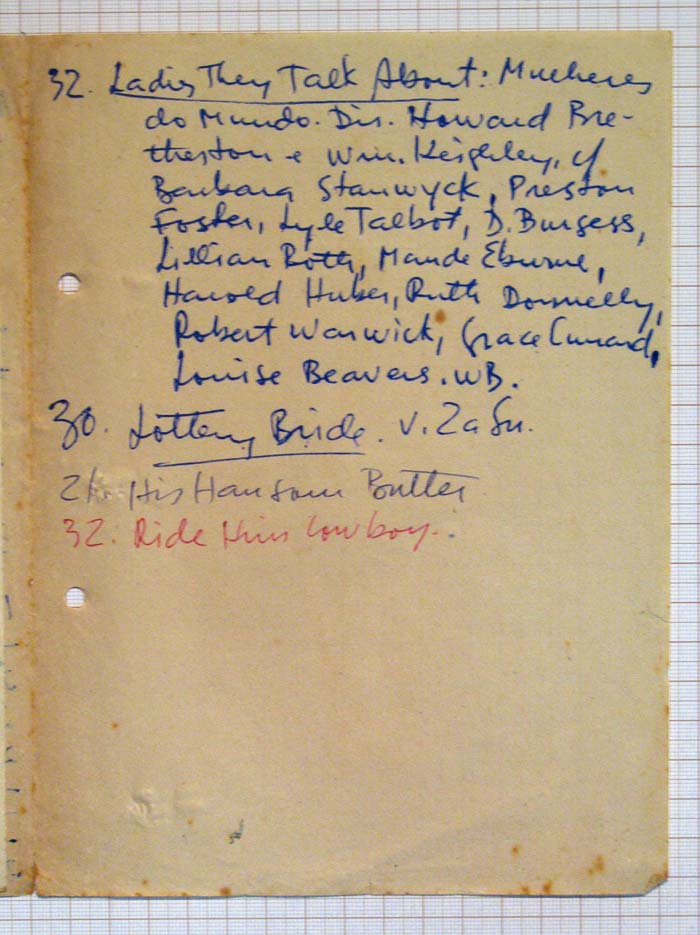 32. Ladies They Talk About: Mulheres
do Mundo. Dir. Howard Bre-
therton e Wm. Keighley, c/
Barbara Stanwyck, Preston
Foster, Lyle Talbot, D. Burgess,
Lillian Roth, Maude Eburne,
Harold Huber, Ruth Donnelly,
Robert Warwick, Grace Cunard,
Louise Beavers. WB.
30. Lottery Bride. V. ZaSu.
His Hansom Butler
32. Ride Him Cowboy.